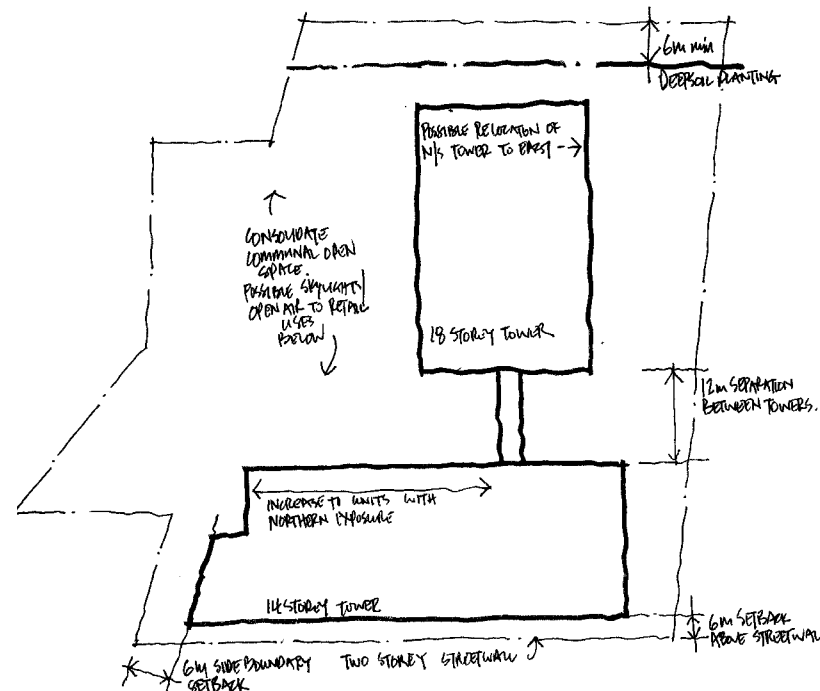 6m min
DEEPSOIL PLANTING
POSSIBLE RELOCATION OF
N/S TOWER TO EAST
CONSOLIDATE
COMMUNAL OPEN
SPACE.
POSSIBLE SKYLIGHTS/
OPEN AIR TO RETAIL
USES
BELOW
18 STOREY TOWER
12m SEPARATION
BETWEEN TOWERS.
INCREASE TO UNITS WITH
NORTHERN EXPOSURE
14 STOREY TOWER
6m SETBACK
ABOVE STREETWAL
6m SIDE BOUNDARY
SETBACK
TWO STOREY STREETWALL